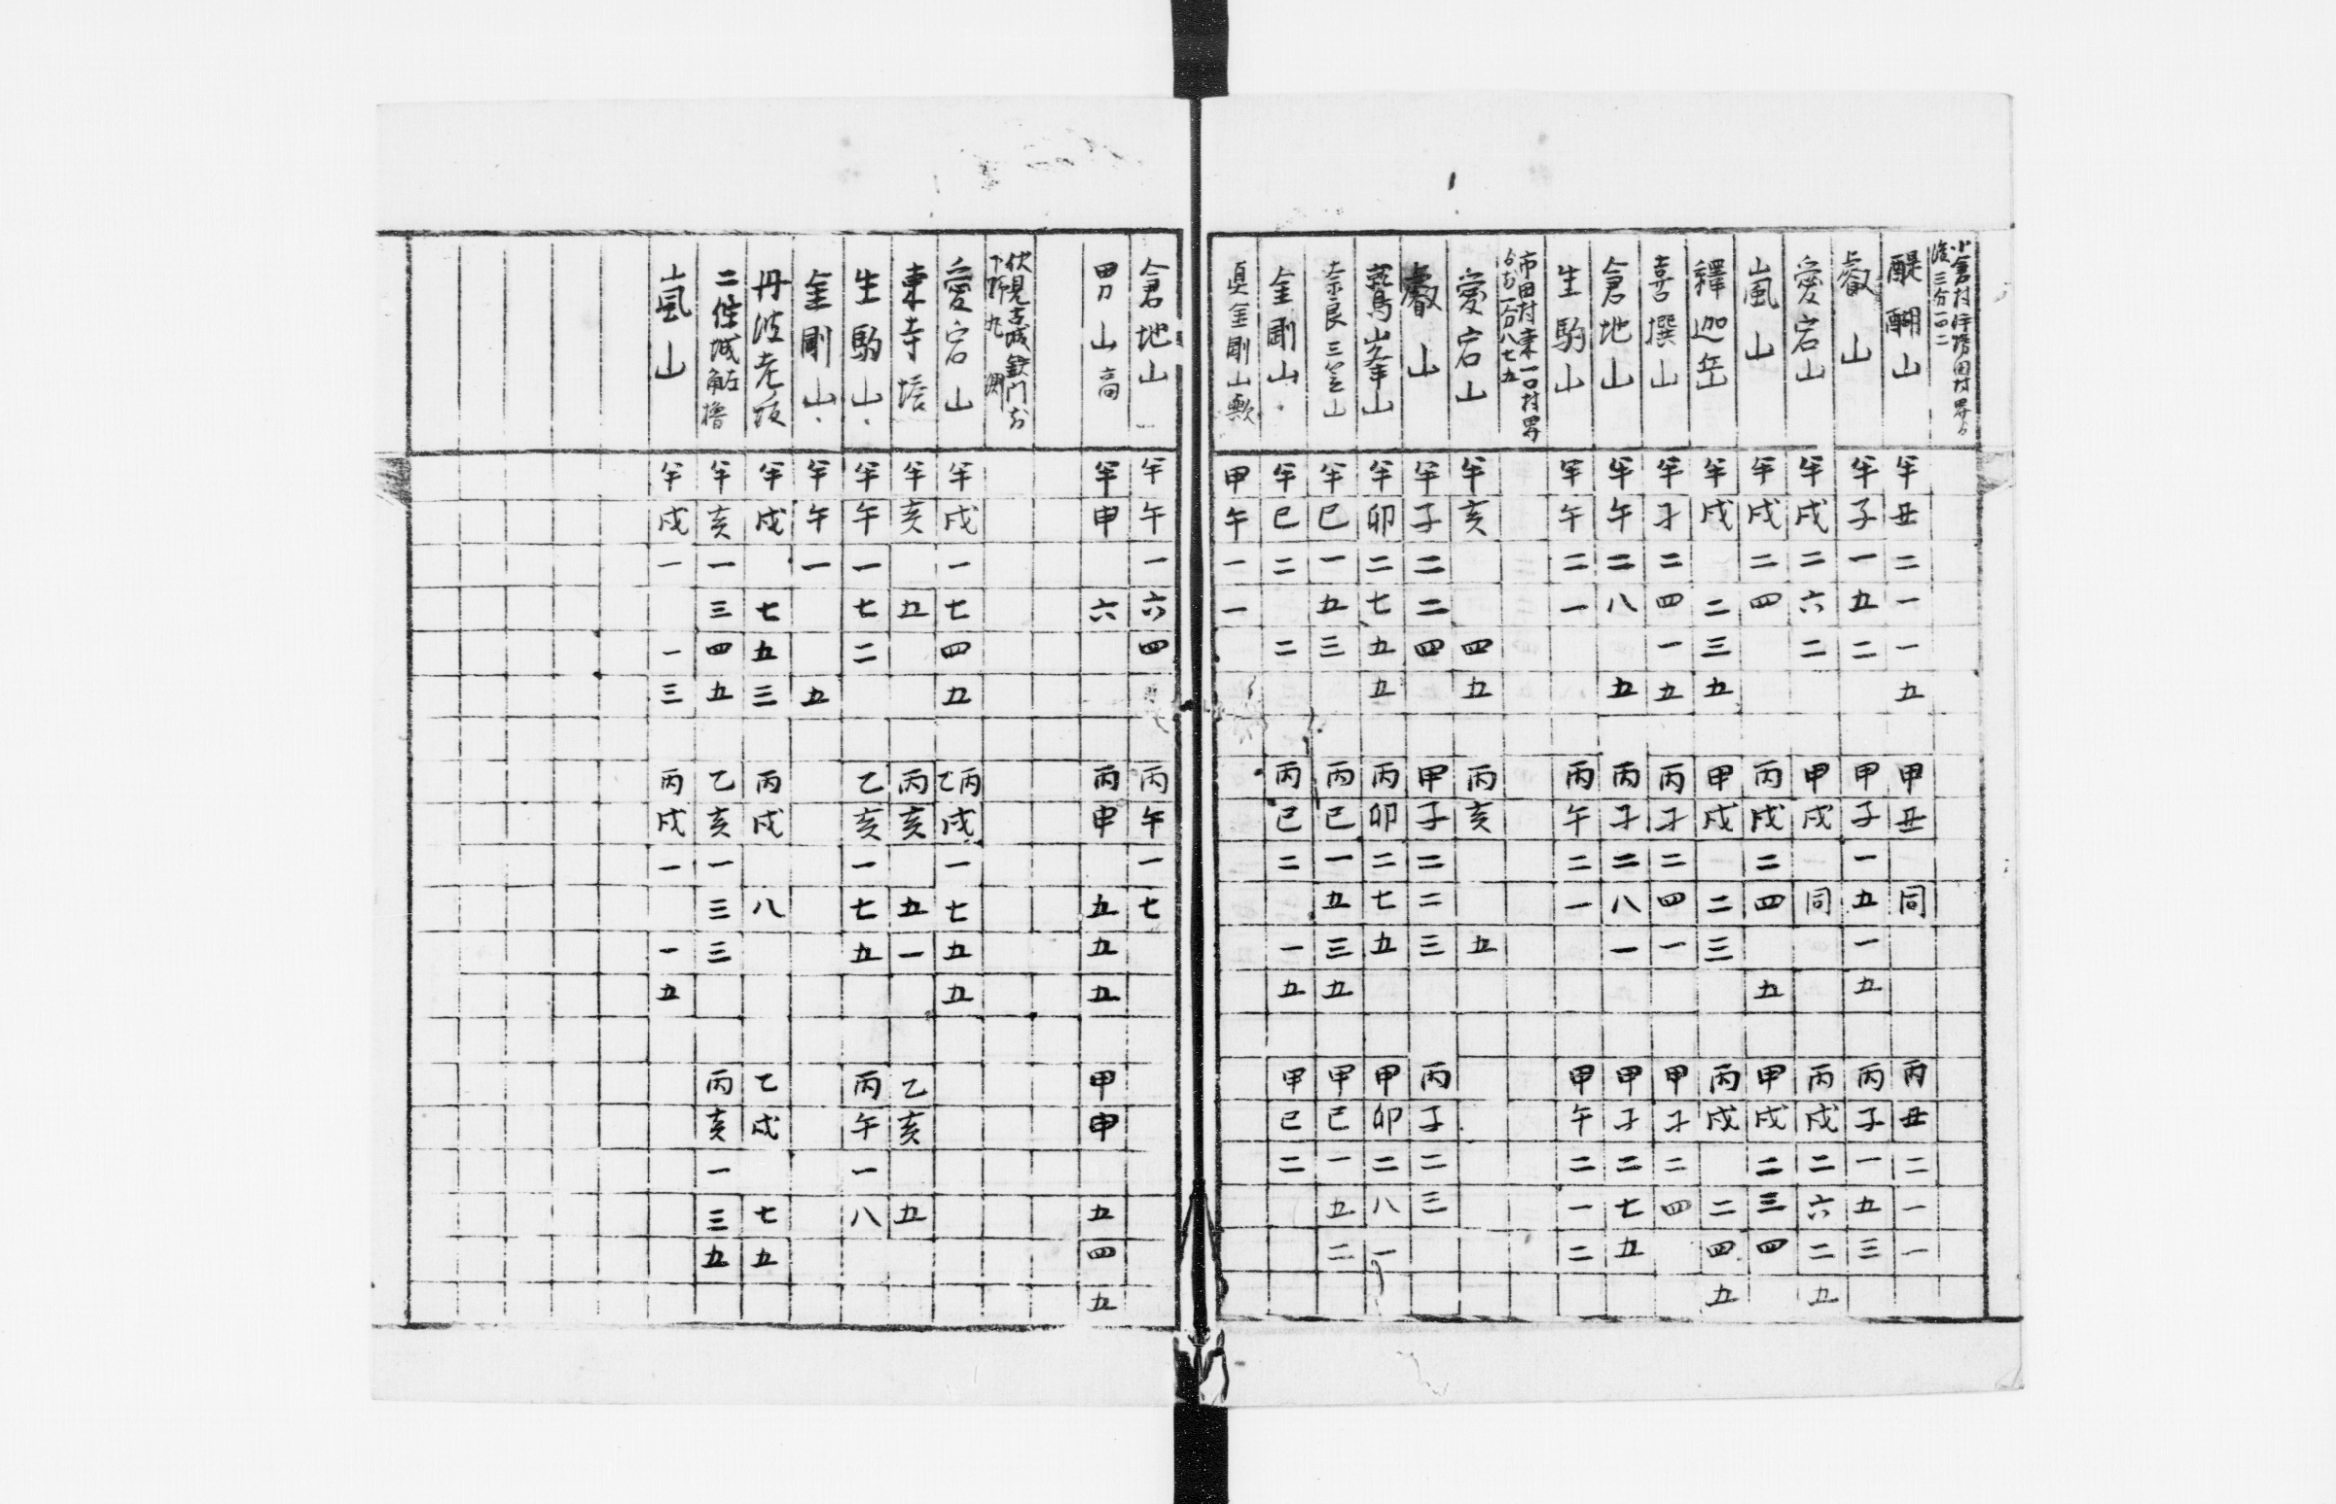 小倉村伊勢田村界ゟ
後三分一〇二
醍醐山 半丑二一一五 甲丑同 丙丑二一一
叡山 半子一五二 甲子一五一五 丙子一五三
愛宕山 半戌二六二 甲戌同 丙戌二六二五
嵐山 半戌二四 丙戌二四五 甲戌二三四
釋迦岳 半戌二三五 甲戌二三 丙戌二四五
喜撰山 半子二四一五 丙子二四一 甲子二四
倉地山 半午二八五 丙子二八一 甲子二七五
生駒山 半午二一 丙午二一 甲午二一二
市田村東一口村界
一分八七五
愛宕山 半亥四五 丙亥五
叡山 半子二二四 甲子二二三 丙子二三
鷲峯山 半卯二七五五 丙卯二七五 甲卯二八一
奈良三笠山 半巳一五三 丙巳一五三五 甲巳一五二
金剛山 半巳二二 丙巳二一五 甲巳二
真金剛山歟 甲午一一
倉地山 半午一六四 丙午一七
男山高 半申六 丙申五五五 甲申五四五
伏見古城鉄門
下 九
愛宕山 半戌一七四五 乙丙戌一七五五
東寺塔 半亥五 丙亥五一 乙亥五
生駒山 半午一七二 乙亥一七五 丙午一八
金剛山 半午一五
丹波老坂 半戌七五三 丙戌八 乙戌七五
二條城左角櫓 半亥一三四五 乙亥一三三 丙亥一三五
嵐山 半戌一一三 丙戌一一五